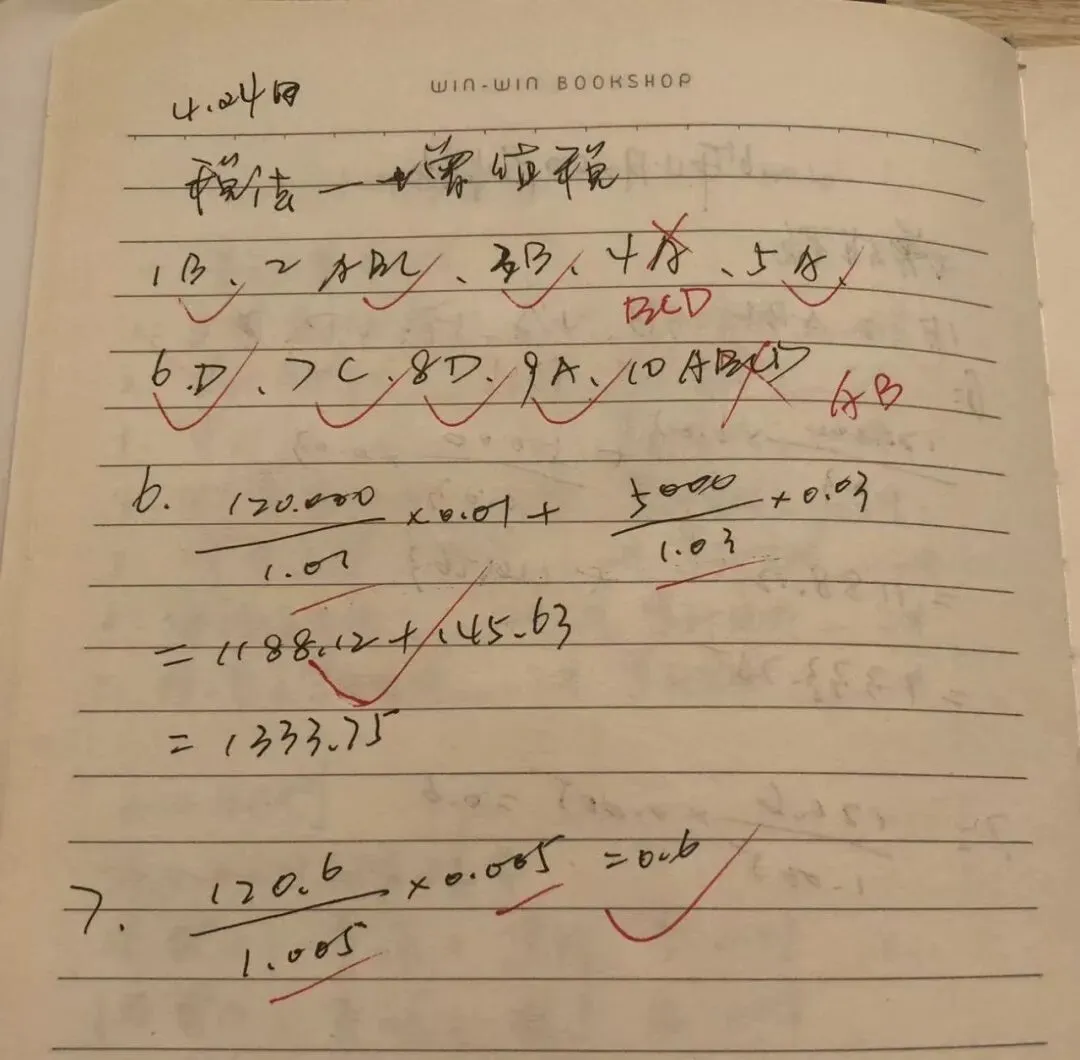 WIN-WIN BOOKSHOP
4.24日
税法——增值税
1B、2 ABC、3B、4A、5A
BCD
6.D、7C、8D、9A、10 ABCD
AB
6. 120.000/1.01 ×0.01 + 5000/1.03 ×0.03
= 1188.12 + 145.63
= 1333.75
7. 120.6/1.005 ×0.005 = 0.6